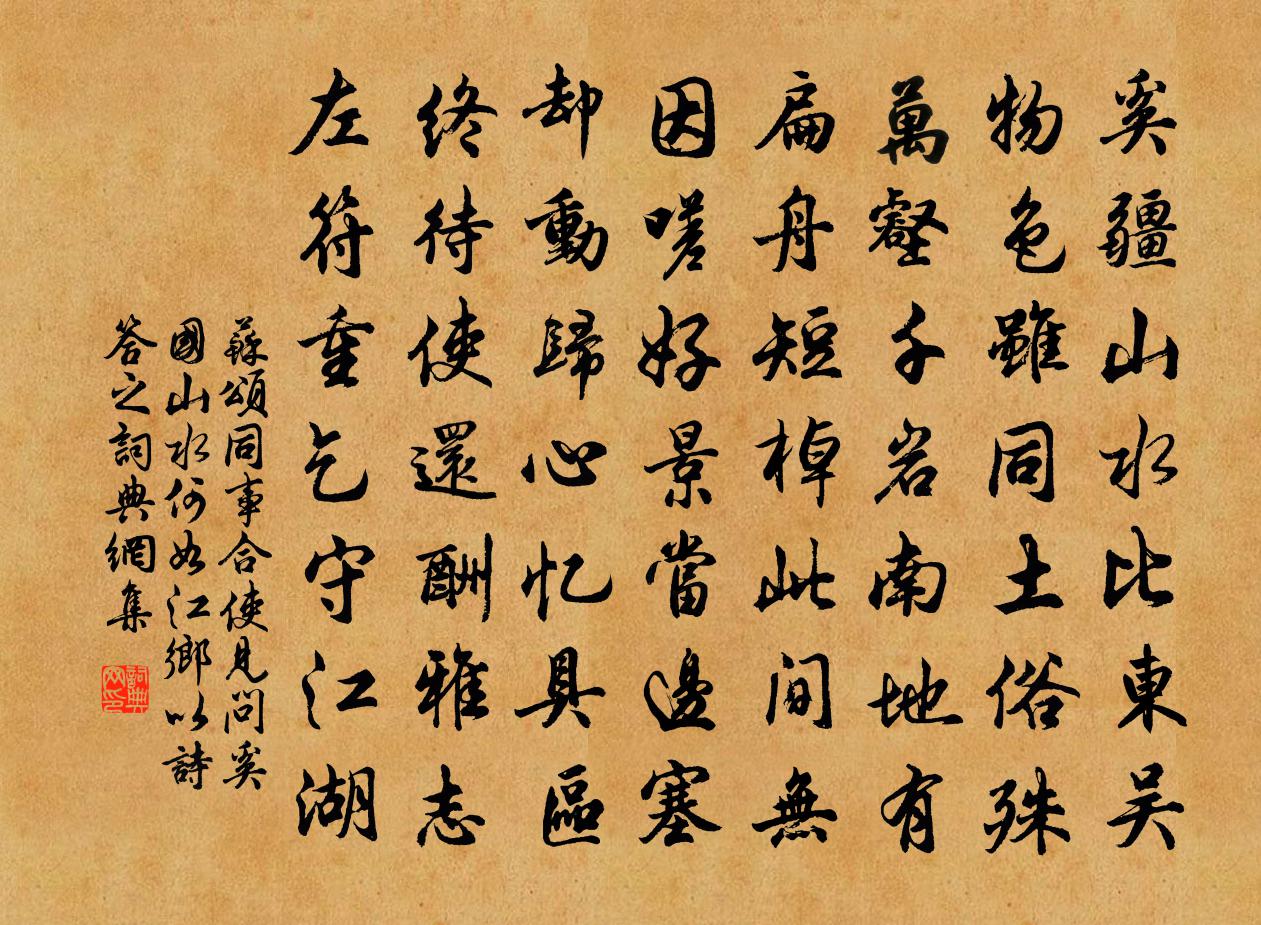 奚疆山水比東吴
物色雖同土俗殊
萬壑千岩南地有
扁舟短棹此間無
因嗟好景當邊塞
却動歸心忆具區
終待使還酬雅志
左符重乞守江湖
蘇頌同事合使見問奚
國山水何如江鄉以詩
答之詞典網集
詞典
网印